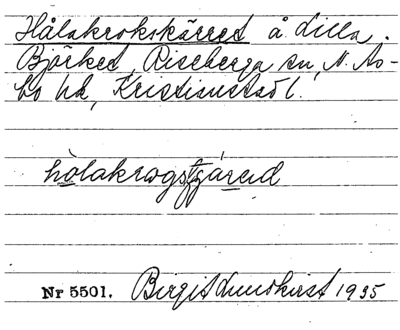 Hålakrokskärret å Lilla
Björket, Riseberga sn, N. Ås-
bo hd, Kristianstads l.
hòlakrogstjäred
Nr 5501. Birgit Lundkvist 1935